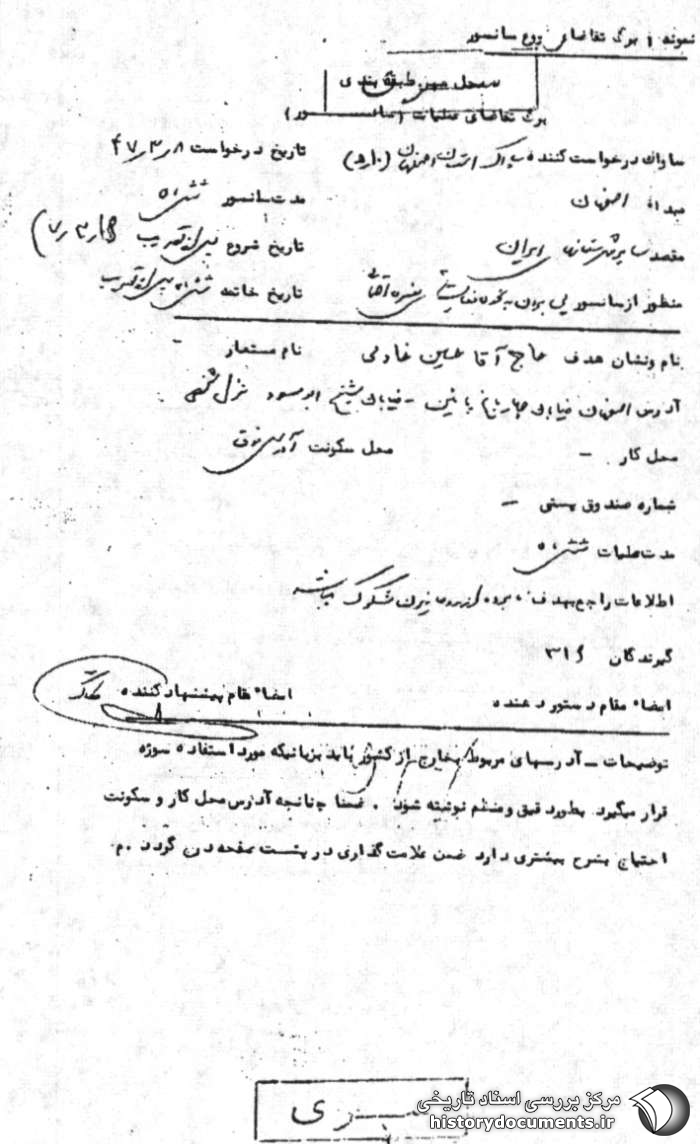 نمونه ۱ برگ تقاضای نوع سانسور
محل طبقه بندی
برگ تقاضای عملیات (سانسور)
ساواک درخواست کننده ساواک استان اصفهان (۱۰ه‍) تاریخ درخواست ۴۷٫۳٫۸
مبداء اصفهان مدت سانسور شش ماه
مقصد سایر شهرستانهای ایران تاریخ شروع پس از تصویب
منظور از سانسور پی بردن به تاریخ خاتمه شش ماه پس از تصویب
نام ونشان هدف حاج آقا حسین خادمی نام مستعار
آدرس اصفهان خیابان چهارباغ پائین - خیابان شیخ ابومسعود منزل شخصی
محل کار - محل سکونت آدرس فوق
شماره صندوق پستی -
مدت عملیات شش ماه
اطلاعات راجع بهدف مشکوک میباشد
گیرندگان ۳۱۶
امضاء مقام دستور دهنده امضاء مقام پیشنهاد کننده
توضیحات - آدرسهای مربوط بخارج از کشور باید بزبانیکه مورد استفاده سوژه
قرار میگیرد بطور دقیق ومنظم نوشته شود . ضمنا چنانچه آدرس محل کار و سکونت
احتیاج بشرح بیشتری دارد ضمن علامت گذاری در پشت صفحه درج گردد .م.
سری
مرکز بررسی اسناد تاریخی
historydocuments.ir